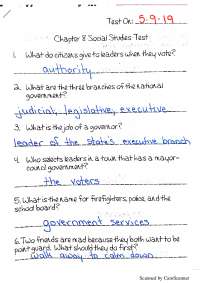 Test On: 5-9-19
Chapter 8 Social Studies Test
1. What do citizens give to leaders when they vote?
authority
2. What are the three branches of the national
government?
judicial, legislative, executive
3. What is the job of a governor?
leader of the State's executive branch
4. Who selects leaders in a town that has a mayor-
council government?
the voters
5. What is the name for firefighters, police, and the
school board?
government services
6. Two friends are mad because they both want to be
point guard. What should they do first?
walk away to calm down
Scanned by CamScanner